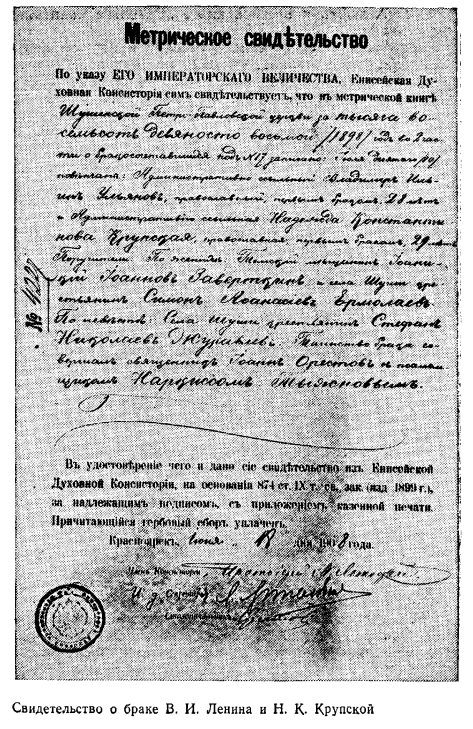 Метрическое свидѣтельство
По указу ЕГО ИМПЕРАТОРСКАГО ВЕЛИЧЕСТВА, Енисейская Ду-
ховная Консисторія симъ свидѣтельствуетъ, что въ метрической книгѣ
Шушенской Петро-Павловской церкви за тысяча во-
семьсотъ девяносто восьмой /1898/ годъ во 2 час-
ти о бракосочетавшихся подъ № 17 записано: Іюля десятаго /10/
повѣнчаны: Административно-ссыльный Владиміръ Иль-
инъ Ульяновъ, православный, первымъ бракомъ, 28 лѣтъ
и Административно ссыльная Надежда Константи-
нова Крупская, православная первымъ бракомъ, 29 лѣтъ
Поручители По женихѣ: мѣщанинъ Іоан-
Іоанновъ Завёрткинъ и села Шуши кре-
стьянинъ Симонъ Аѳанасіевъ Ермолаевъ
По невѣстѣ: Села Шуши крестьянинъ Стефанъ
Николаевъ Журавлевъ. Таинство брака со-
вершалъ священникъ Іоаннъ Орестовъ съ псалом-
щикомъ
№ 4227
Въ удостовѣреніе чего и дано сіе свидѣтельство изъ Енисейской
Духовной Консисторіи, на основаніи 874 ст. IX т. св. зак. (изд 1899 г.),
за надлежащимъ подписомъ, съ приложеніемъ казенной печати.
Причитающійся гербовый сборъ уплаченъ.
Красноярскъ, іюня дня 1908 года.
Членъ Консисторіи, Протоіерей
И. д. Секретаря
Свидетельство о браке В. И. Ленина и Н. К. Крупской